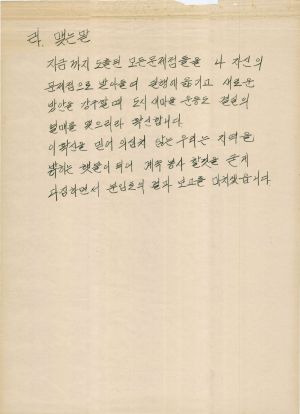 라. 맺는말
지금까지 도출된 모든문제점들을 나 자신의
문제점으로 받아들여 실행에 옮기고 새로운
방안을 강구할때 도시새마을 운동도 결실의
열매를 맺으리라 확신합니다.
이 확신을 믿어 의심치 않는 우리는 지역을
밝히는 횃불이 되어 계속 봉사 할것을 굳게
다짐하면서 분임토의 결과 보고를 마치겠읍니다.